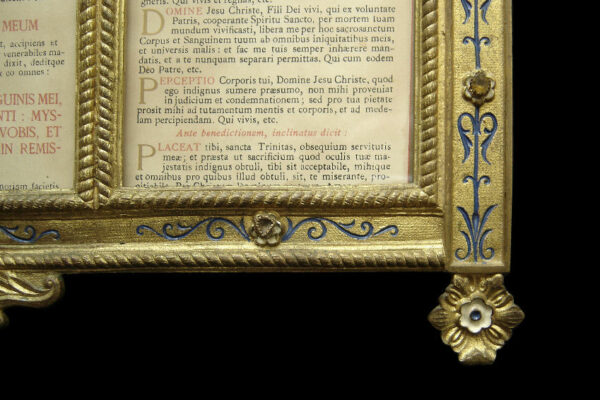 MEUM
t, accipiens et
venerabiles ma
dixit, deditque
co omnes :
GUINIS MEI,
NTI : MYS-
VOBIS, ET
IN REMIS-
gneris. Qui vivis et regnas, etc.
DOMINE Jesu Christe, Fili Dei vivi, qui ex voluntate
Patris, cooperante Spiritu Sancto, per mortem tuam
mundum vivificasti, libera me per hoc sacrosanctum
Corpus et Sanguinem tuum ab omnibus iniquitatibus meis,
et universis malis : et fac me tuis semper inhærére man-
datis, et a te nunquam separari permittas. Qui cum eodem
Deo Patre, etc.
PERCEPTIO Corporis tui, Domine Jesu Christe, quod
ego indignus sumere præsumo, non mihi proveniat
in judicium et condemnationem ; sed pro tua pietate
prosit mihi ad tutamentum mentis et corporis, et ad mede-
lam percipiendam. Qui vivis, etc.
Ante benedictionem, inclinatus dicit :
PLACEAT tibi, sancta Trinitas, obsequium servitutis
meæ ; et præsta ut sacrificium quod oculis tuæ ma-
jestatis indignus obtuli, tibi sit acceptabile, mihique
et omnibus pro quibus illud obtuli, sit, te miserante, pro-